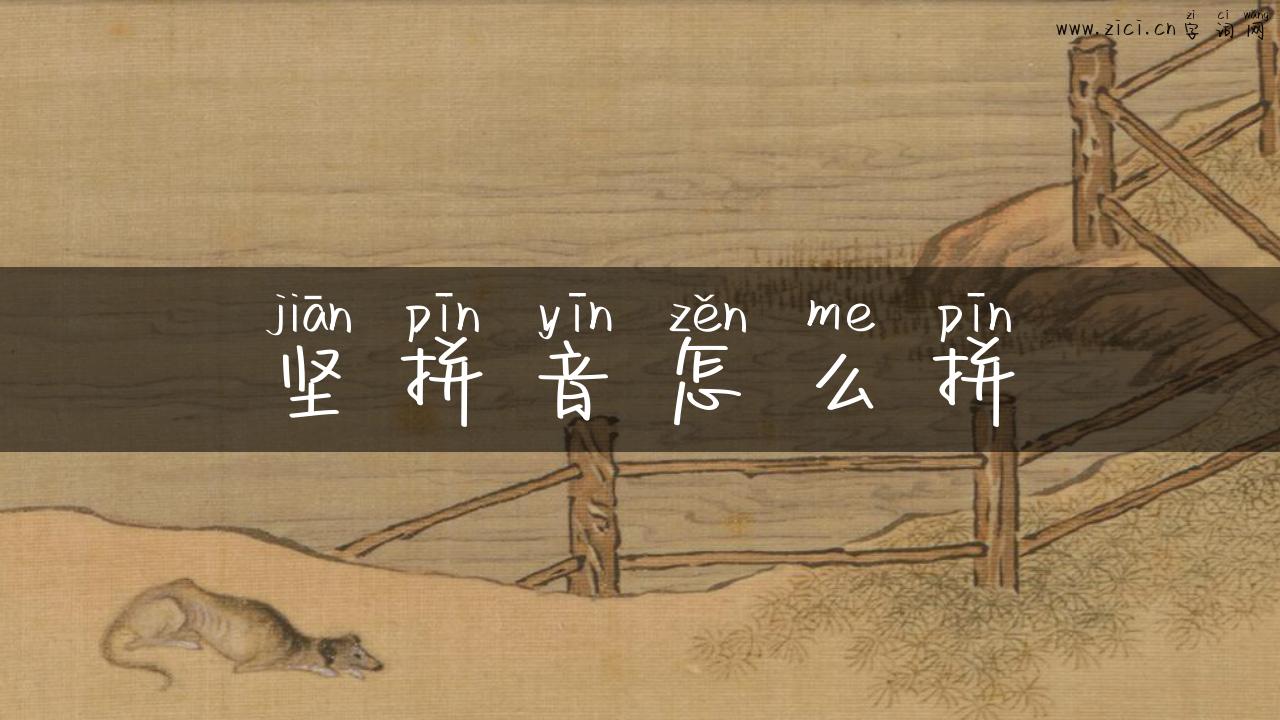 zi ci wang
www.zici.cn 字词网
jiān pīn yīn zěn me pīn
坚拼音怎么拼